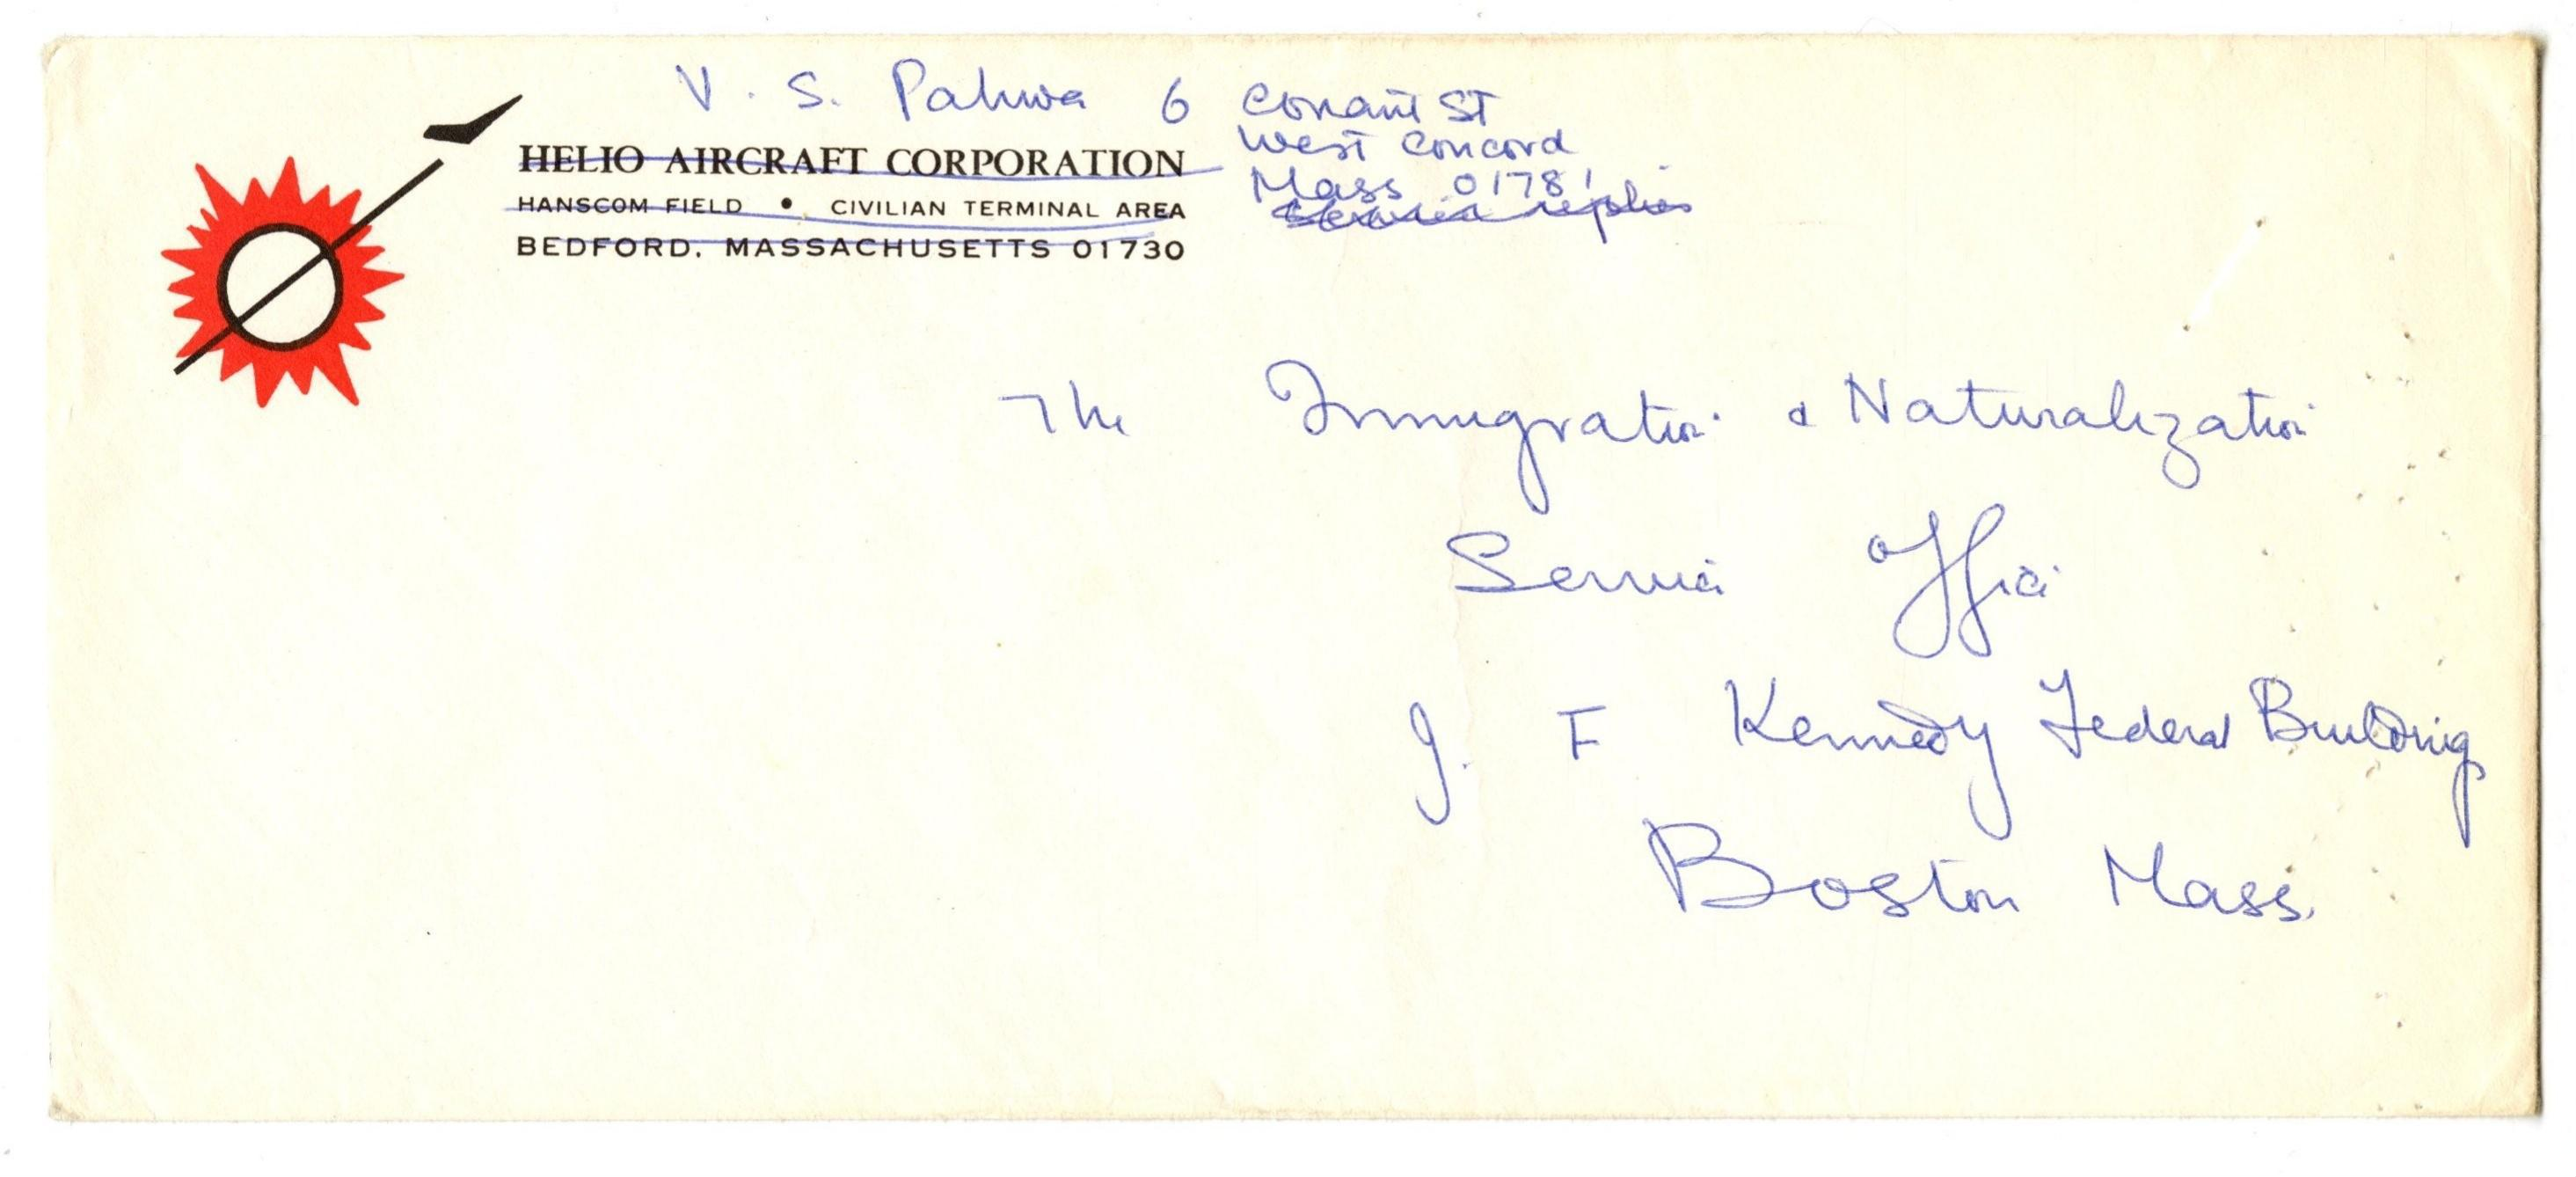 V. S. Pahwa 6 Conant ST
West Concord
Mass 01781
HELIO AIRCRAFT CORPORATION
HANSCOM FIELD • CIVILIAN TERMINAL AREA
BEDFORD, MASSACHUSETTS 01730
The Immigration & Naturalization
Service Office
J. F Kennedy Federal Building
Boston Mass.